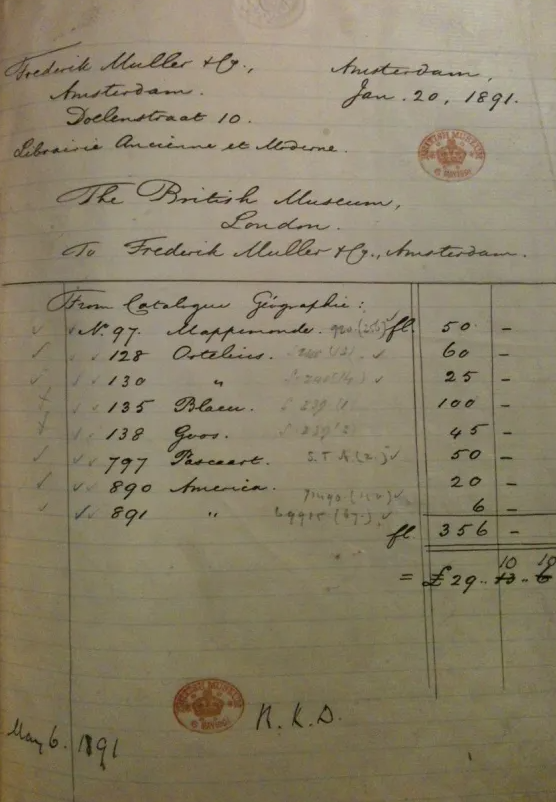 Frederik Muller & Co., Amsterdam,
Amsterdam. Jan. 20, 1891.
Doelenstraat 10.
Librairie Ancienne et Moderne.
BRITISH MUSEUM
The British Museum,
London.
To Frederik Muller & Co., Amsterdam.
From Catalogue Géographie:
No. 97. Mappemonde. fl. 50 -
128 Ortelius. 60 -
130 " 25 -
135 Blaeu. 100 -
138 Goos. 45 -
797 Pascaart. S.T.A.(2.) 50 -
890 America. 20 -
891 " 6 -
fl. 356 -
10 10
= £ 29.. 13.. 6
BRITISH MUSEUM
R. K. D.
May 6. 1891